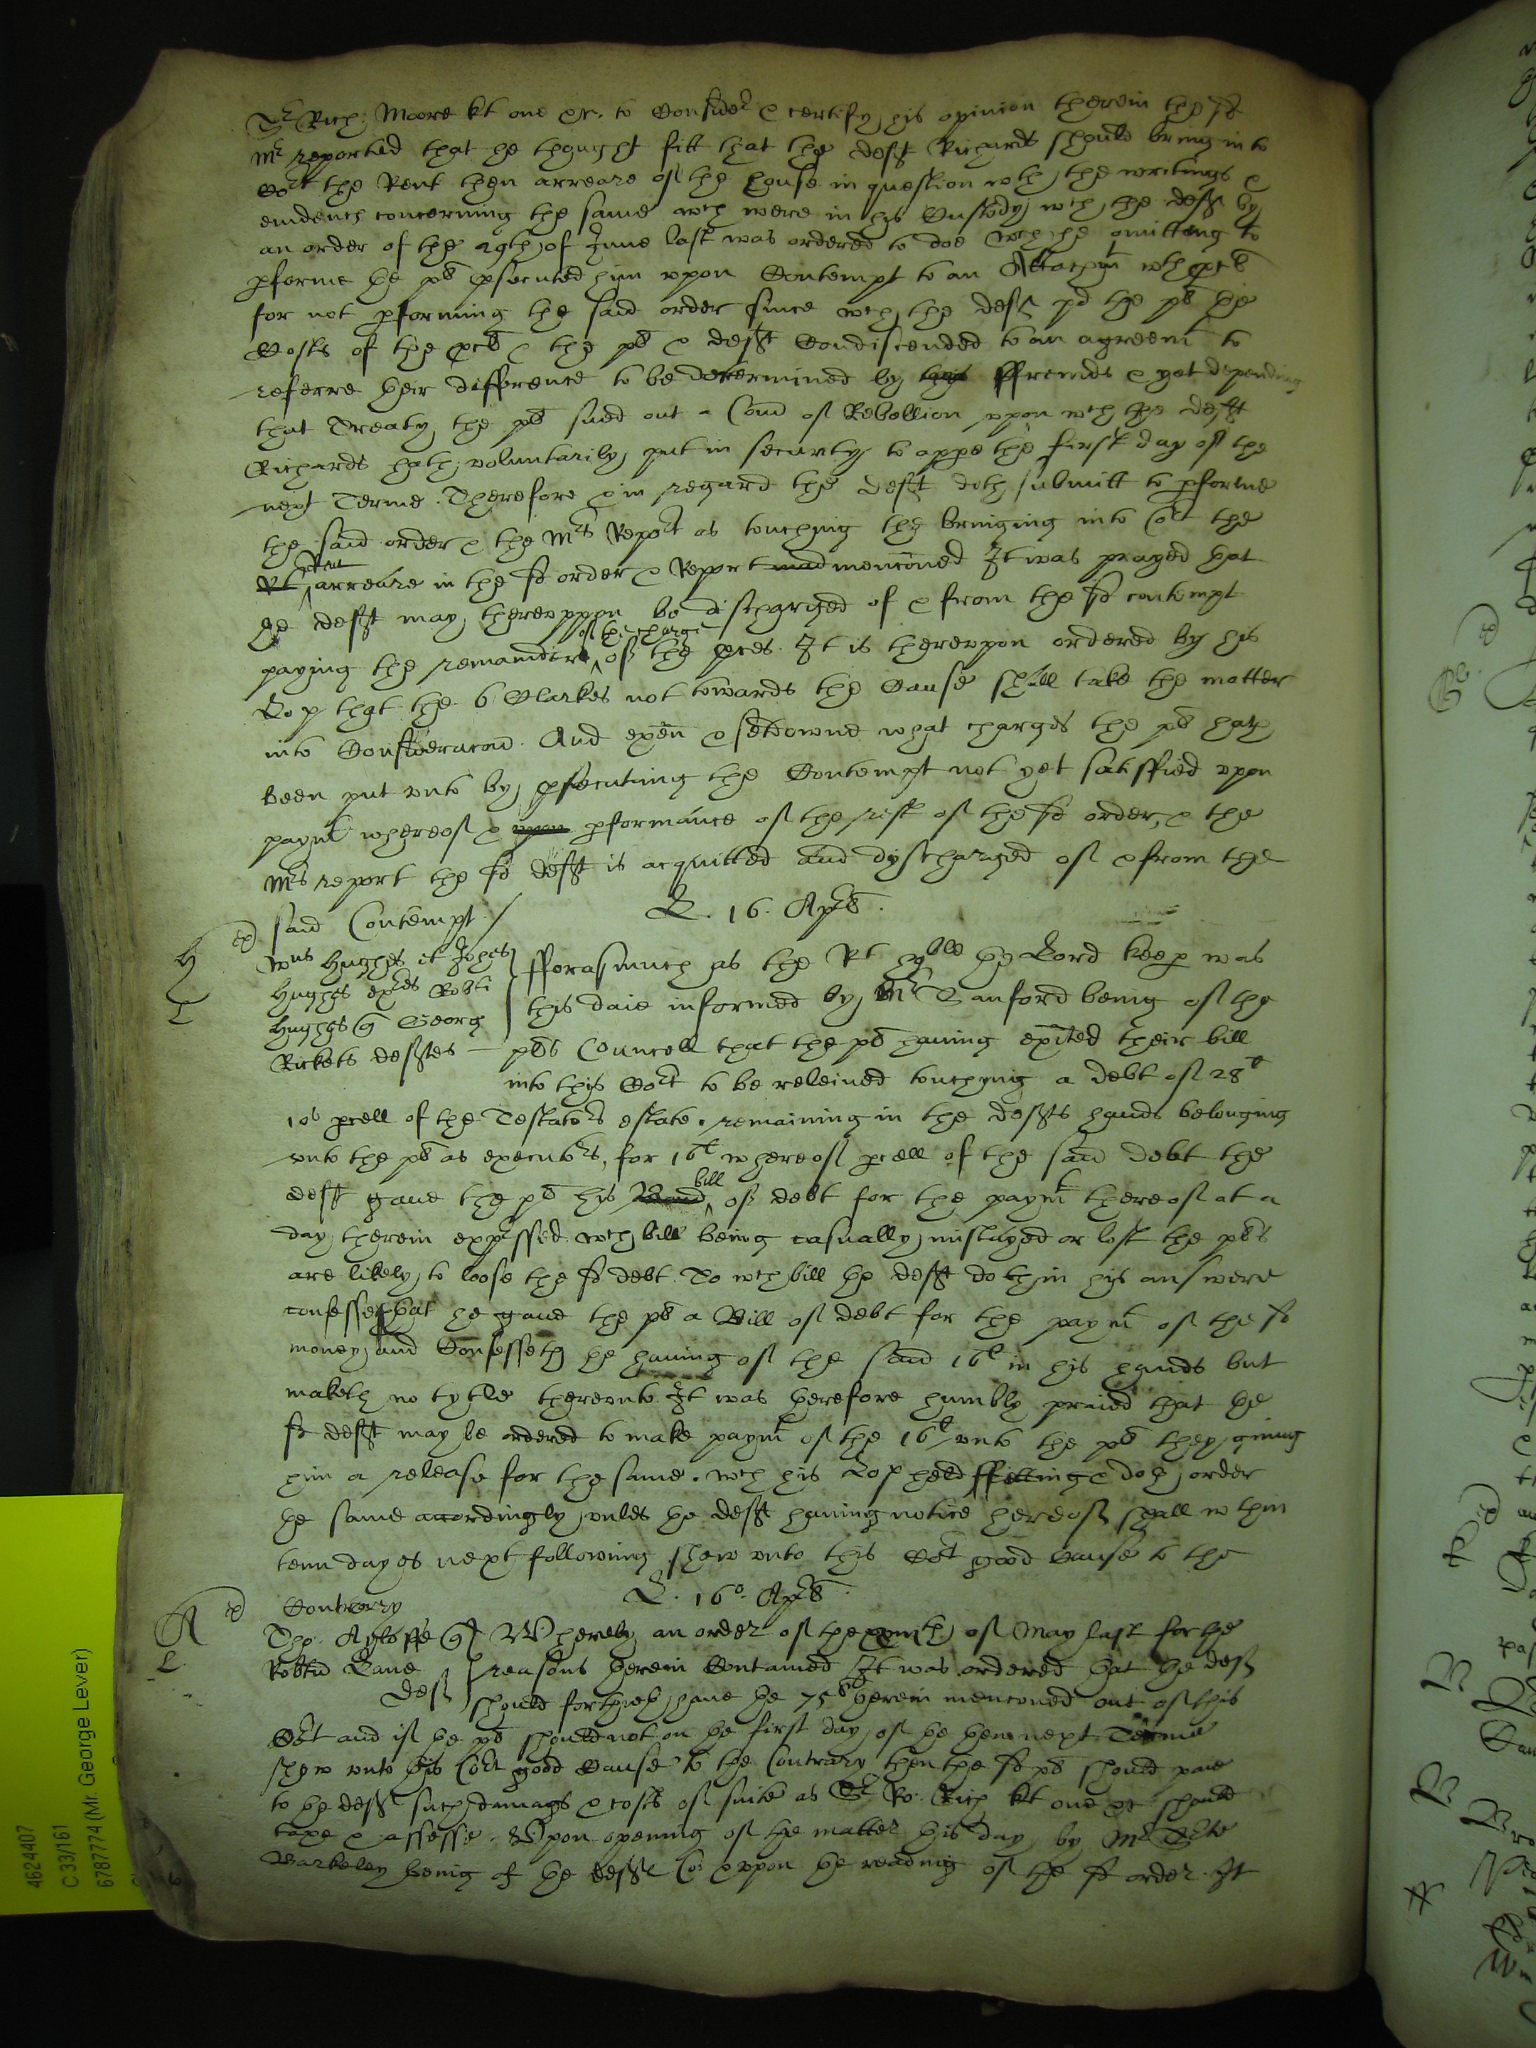 Sr Rich: Moore kt one &c. to Consider & certify his opinion therein the sd
Mr reported that he thought fitt that the defft Richards should bring into
Cort the Rent then arreare of the house in question wth the writings &
evidence concerning the same wch were in his Custody wch the deft by
an order of the 29th of June last was ordered to doe Wch he omitteng to
pforme the plt psecuted him vppon Contempt to an Attachmt wth pcls
for not pforming the said order since wch the deft pd the plt the
Costs of the pcls & the plt & defft Condiscended to an agreemt to
referre their difference to be determined by theis ffreinds & yet depending
that Treaty the plt sued out a Com of Rebellion vppon wch the defft
Richards hath voluntarily put in security to appe the first day of the
next Terme. Therefore & in regard the defft doth submitt to pforme
the said order & the Mrs Report as touching the bringing into Cort the
Rt arreare in the sd order & Report mad mencõned It was prayed that
the defft may therevppon be discharged of & from the sd contempt
paying the remainder of the charge of the pces. It is therevpon ordered by his
Lop that the 6 Clarkes not towards the Cause shall take the matter
into Consideracon. And exen & sett downe what charges the plt hath
been put vnto by psecuting the Contempt not yet satisffied vpon
paymt whereof & vpon pformance of the rest of the sd order, & the
Mrs report the sd defft is acquitted and dyscharged of & from the
said Contempt.
L. 16. Aprs.
H
L
Wm Hughes et Johes
Hughes exres Robti
Hughes qs Georg
Rickets deftes
fforasmuch as the Rt hoble the Lord keep was
this daie informed by Mr Sanford being of the
plts Councell that the plt having exited their bill
into this Cort to be releived touching a debt of 28l
10s pcell of the Testators estate remaining in the deffts hands belonging
vnto the plt as executors, for 16l whereof pcell of the said debt the
defft gave the plt his Band bill of debt for the paymt thereof at a
day therein expssed. wch bill being casually mislayed or lost the plts
are likely to loose the sd debt. To wch bill the defft doth in his answere
confesse that he gave the plt a Bill of debt for the paymt of the sd
money and Confesseth the having of the said 16l in his hands but
maketh no tytle therevnto It was therefore humbly praied that the
sd defft may be ordered to make paymt of the 16l vnto the plt they giving
him a release for the same. wch his Lop held ffitting & doth order
the same accordingly vnles the defft having notice hereof shall wthin
tenn dayes next following shew vnto this Cort good Cause to the
Contrary
L. 16o. Aprs.
A
L
Tho. Ayloffe qs
Robtu Lane
deft
Whereby an order of the of May last for the
reasons therein Contained It was ordered that the deft
should forthwth have the 75l therein menconed out of this
Cort and if the plt should not on the first day of the then next Terme
shew vnto this Cort good Cause to the Contrary then the sd plt should paie
to the deft such damags & costs of suite as Sr Ro. Rich kt one &c should
taxe & assesse. Vpon opening of the matter this day by Mr
Barkeley being of the defts Co: & vpon the reading of the sd order. It
4624407
C 33/161
6787774 (Mr. George Lever)